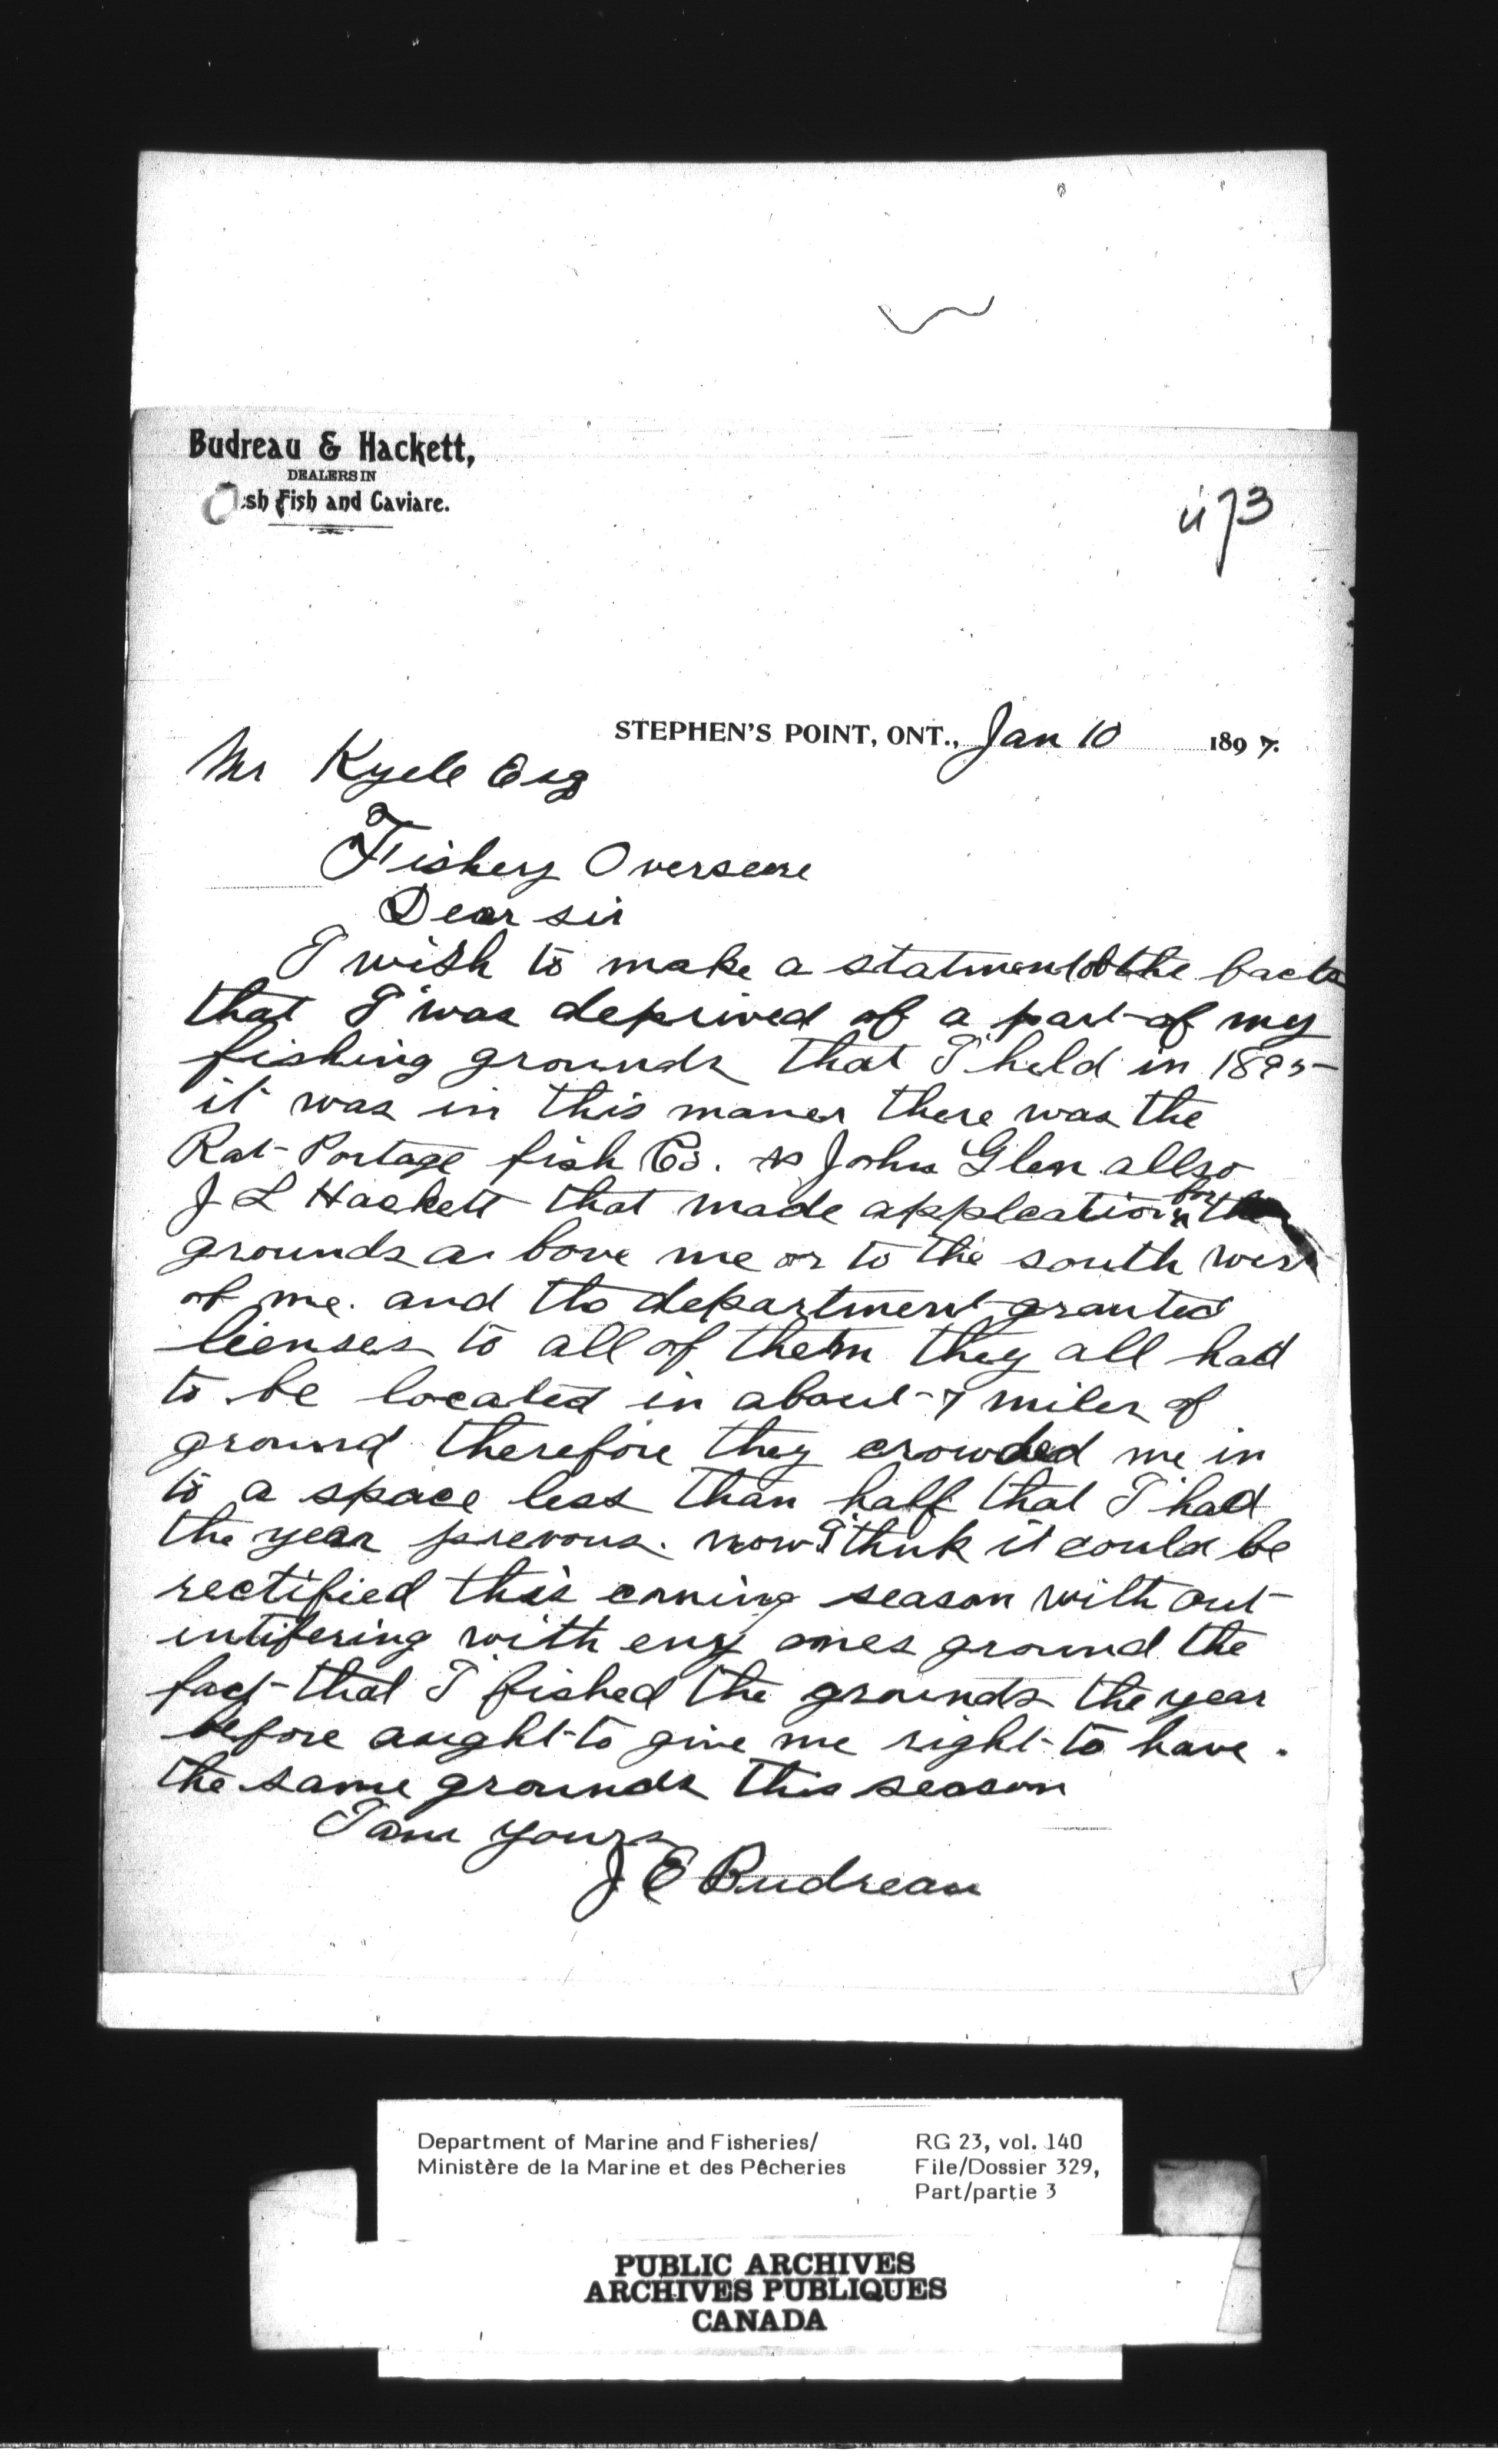 Budreau & Hackett,
DEALERS IN
sh Fish and Caviare.
73
STEPHEN'S POINT, ONT., Jan 10 1897.
Mr Kyele Esq
Fishery Overseere
Dear sir
I wish to make a statment of the facts
that I was deprived of a part of my
fishing grounds that I held in 1895
it was in this maner there was the
Rat-Portage fish Co. & John Glen allso
J L Hackett that made appleation for the
grounds a bove me or to the south west
of me. and the department granted
lienses to all of them they all had
to be located in about 7 miles of
ground therefore they crowded me in
to a space less than half that I had
the year prevous. now I thnk it could be
rectified this coming season with out
intifering with eny ones ground the
fact that I fished the grounds the year
before aught to give me right to have.
the same grounds this season
I am yours
J E Budreau
Department of Marine and Fisheries/ RG 23, vol. 140
Ministère de la Marine et des Pêcheries File/Dossier 329,
Part/partie 3
PUBLIC ARCHIVES
ARCHIVES PUBLIQUES
CANADA